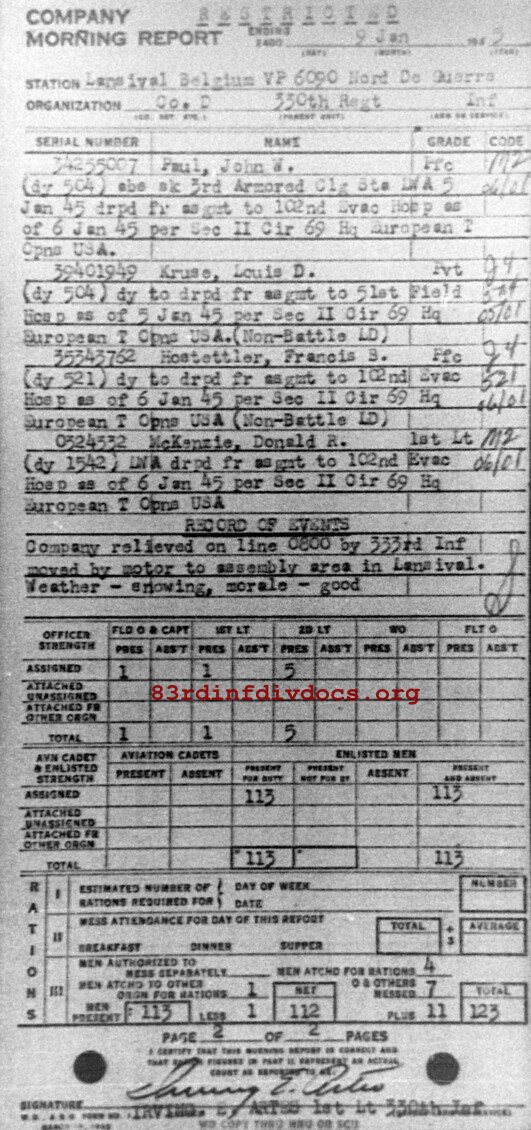 COMPANY
MORNING REPORT
RESTRICTED
ENDING
2400 9 Jan 194 5
(DAY) (MONTH) (YEAR)
STATION Lansival Belgium VP 6090 Nord De Guerre
ORGANIZATION Co. D 330th Regt Inf
(PARENT UNIT) (ARM OR SERVICE)
SERIAL NUMBER NAME GRADE CODE
34255007 Paul, John W. Pfc M2
(dy 504) abs sk 3rd Armored Clg Sta LWA 5 06/01
Jan 45 drpd fr asgmt to 102nd Evac Hosp as
of 6 Jan 45 per Sec II Cir 69 Hq European T
Opns USA.
39401949 Kruse, Louis D. Pvt
(dy 504) dy to drpd fr asgmt to 51st Field 504
Hosp as of 5 Jan 45 per Sec II Cir 69 Hq 05/01
European T Opns USA.(Non-Battle LD)
35343762 Hostettler, Francis S. Pfc
(dy 521) dy to drpd fr asgmt to 102nd Evac 521
Hosp as of 6 Jan 45 per Sec II Cir 69 Hq 06/01
European T Opns USA (Non-Battle LD)
0524332 McKenzie, Donald R. 1st Lt M2
(dy 1542) LWA drpd fr asgmt to 102nd Evac 06/01
Hosp as of 6 Jan 45 per Sec II Cir 69 Hq
European T Opns USA
RECORD OF EVENTS
Company relieved on line 0800 by 333rd Inf
moved by motor to assembly area in Lansival.
Weather - snowing, morale - good
OFFICER STRENGTH FLD O & CAPT 1ST LT 2D LT WO FLT O
PRES ABS'T PRES ABS'T PRES ABS'T PRES ABS'T PRES ABS'T
ASSIGNED 1 1 5
ATTACHED UNASSIGNED
83rdinfdivdocs.org
ATTACHED FR OTHER ORGN
TOTAL 1 1 5
AVN CADET & ENLISTED STRENGTH AVIATION CADETS ENLISTED MEN
PRESENT ABSENT PRESENT FOR DUTY PRESENT NOT FOR DY ABSENT PRESENT AND ABSENT
ASSIGNED 113 113
ATTACHED UNASSIGNED
ATTACHED FR OTHER ORGN
TOTAL 113 113
RATIONS
I ESTIMATED NUMBER OF RATIONS REQUIRED FOR { DAY OF WEEK DATE NUMBER
II MESS ATTENDANCE FOR DAY OF THIS REPORT TOTAL ÷ 3 AVERAGE
BREAKFAST DINNER SUPPER
III MEN AUTHORIZED TO MESS SEPARATELY MEN ATCHD FOR RATIONS 4
MEN ATCHD TO OTHER ORGN FOR RATIONS 1 NET O & OTHERS MESSED 7 TOTAL
MEN PRESENT 113 LESS 1 112 PLUS 11 123
PAGE 2 OF 2 PAGES
I CERTIFY THAT THIS MORNING REPORT IS CORRECT AND
THAT FIGURES IN PART II REPRESENT AN ACTUAL
COUNT AS REPORTED TO ME.
Irving E. Artes
SIGNATURE IRVING E. ARTES 1st Lt 330th Inf
W. D., A. G. O. FORM NO. 1
WD COPY THRU MRU OR SCU